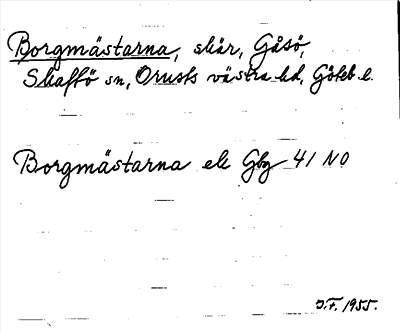 Borgmästarna, skär, Gåsö,
Skaftö sn, Orusts västra hd, Göteb l.
Borgmästarna ek Gbg 41 NO
J.F. 1955.